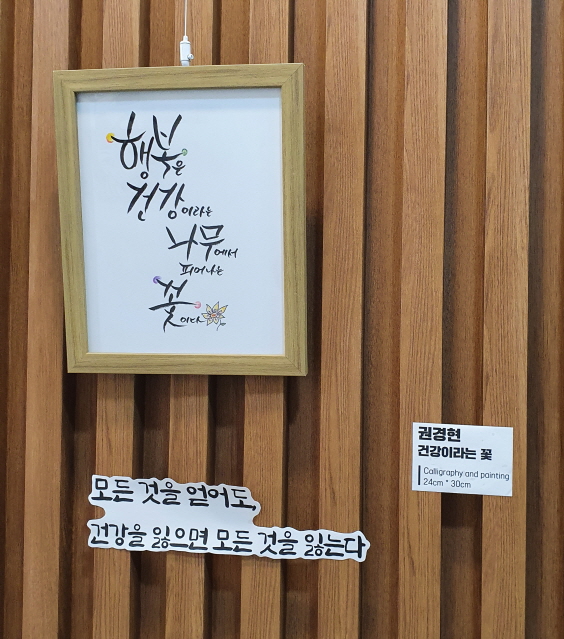 행복은
건강이라는
나무에서
피어나는
꽃이다
모든 것을 얻어도,
건강을 잃으면 모든 것을 잃는다
권경현
건강이라는 꽃
Calligraphy and painting
24cm * 30cm